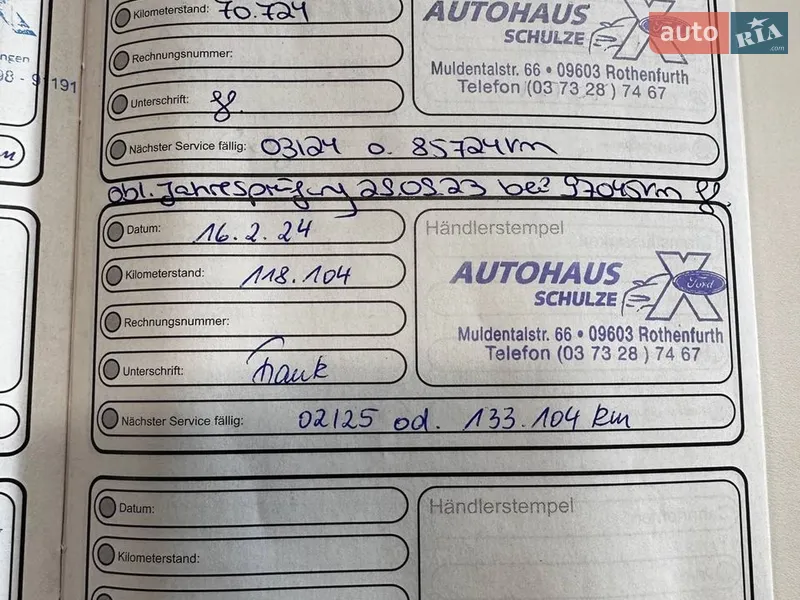 Kilometerstand: 70.724
AUTOHAUS
SCHULZE
auto RIA .com
Rechnungsnummer:
Muldentalstr. 66 • 09603 Rothenfurth
Telefon (03 73 28) 74 67
98 - 91191
Unterschrift:
Nächster Service fällig: 03/24 o. 85724km
obl. Jahresprüfung 29.09.23 bei 97045km
Datum: 16.2.24
Händlerstempel
Kilometerstand: 118.104
AUTOHAUS
SCHULZE
Ford
Rechnungsnummer:
Muldentalstr. 66 • 09603 Rothenfurth
Telefon (03 73 28) 74 67
Unterschrift:
Nächster Service fällig: 02/25 od. 133.104 km
Datum:
Händlerstempel
Kilometerstand: